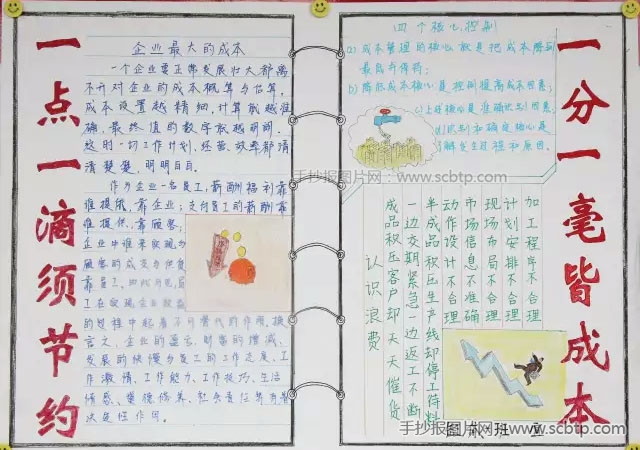 一点一滴须节约
企业最大的成本
一个企业要正常发展壮大都离
不开对企业的成本概算与估算，
成本设置越精细，计算就越准
确，最终值的数字就越明朗，
这时一切工作计划，经营效率都清
清楚楚，明明白白。
作为企业一名员工，薪酬福利靠
谁提供，靠企业；支付员工的薪酬靠
谁提供，靠顾客；
企业中谁来实现与
顾客的成交与供货
靠员工，
的过程中起着不可替代的作用，换
言之，企业的盈亏，财富的增减，
发展的快慢与员工的工作态度、工
作激情、工作能力、工作技巧、生活
情感、
决定性作用。
四个核心控制
a）成本管理的核心就是把成本降到
最底
b）降低成本核心是控制提高成本因素；
c）上述核心是准确识别因素，
d）识别和确定核心是
了解发生过程和原因。
手抄报图片网：www.scbtp.com
认识浪费
成品积压客户却天天催货
一边交期紧急一边返工不断
半成品积压生产线却停工待料
动作设计不合理
市场信息不准确
现场布局不合理
计划安排不合理
加工程序不合理
一分一毫皆成本
手抄报图片网：www.scbtp.com